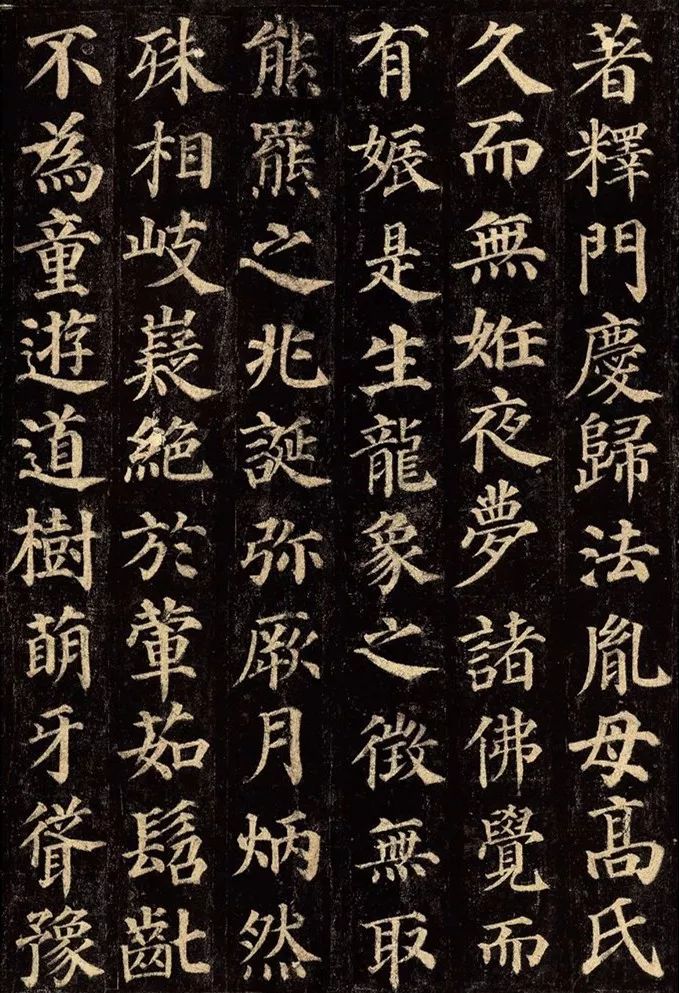 著釋門慶歸法胤母髙氏
久而無妊夜夢諸佛覺而
有娠是生龍象之徵無取
熊羆之兆誕弥厥月炳然
殊相岐嶷絕於葷茹髫齔
不為童遊道樹萌牙聳豫